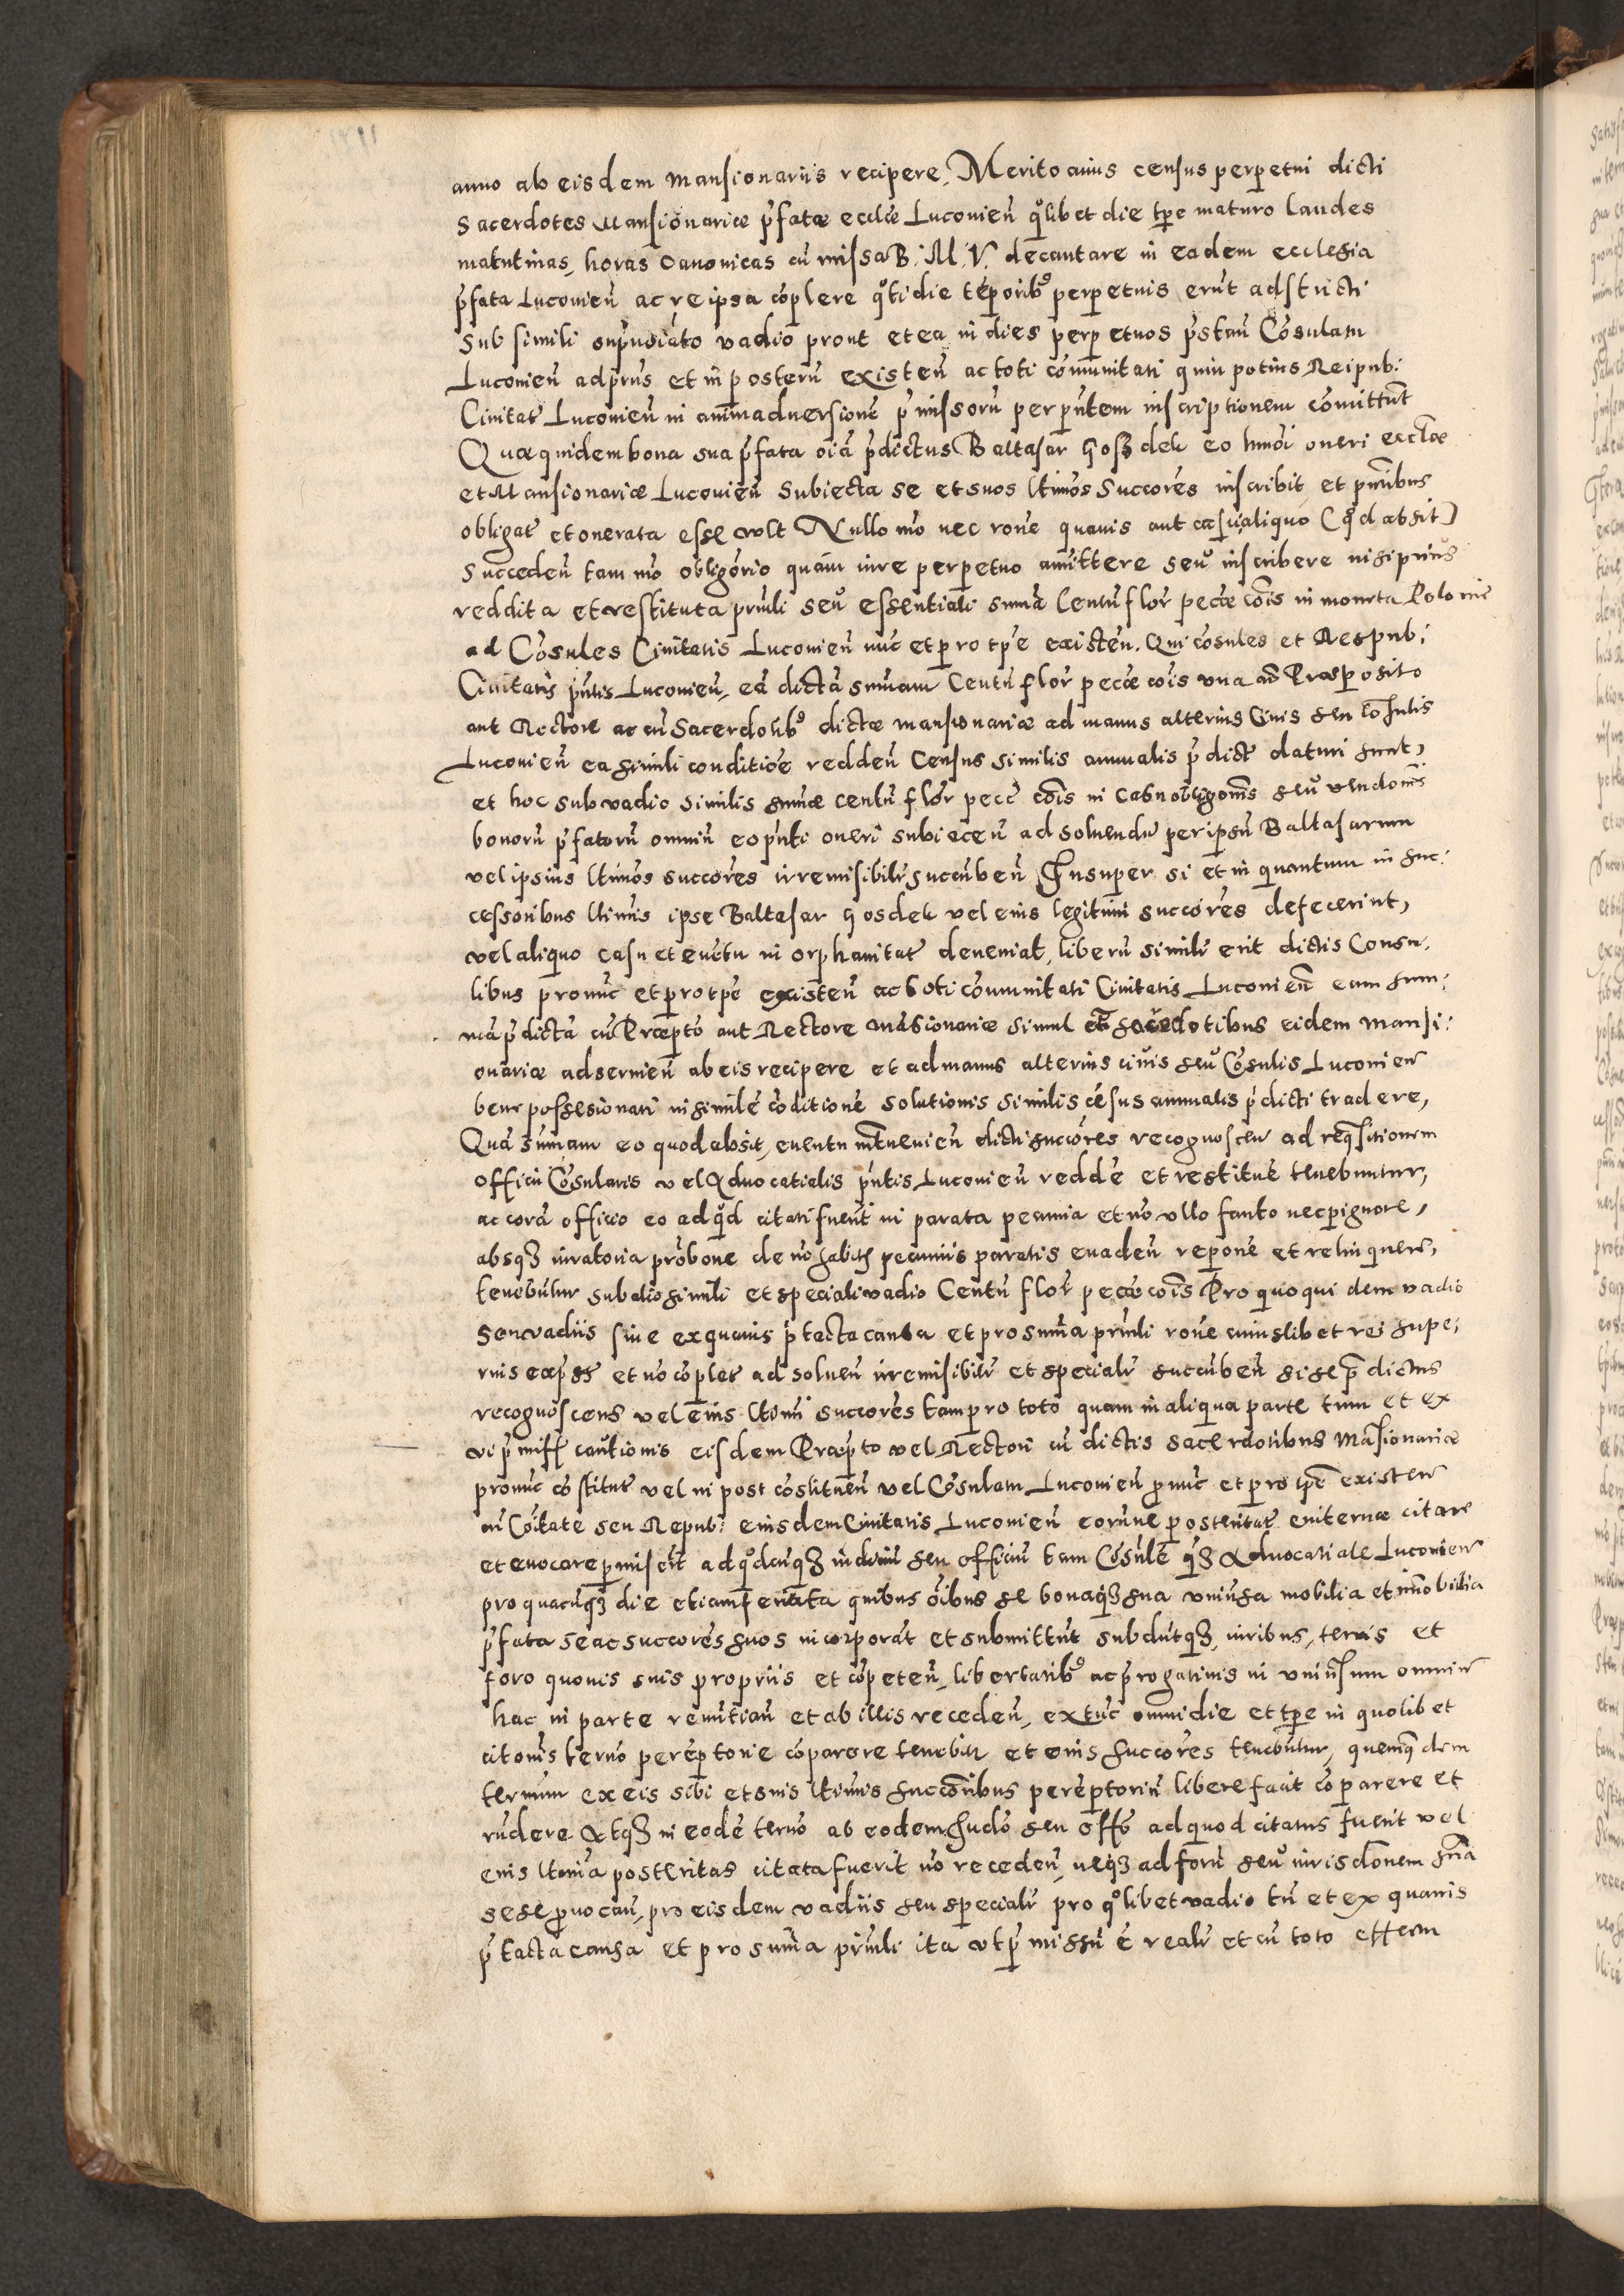 anno ab eisdem mansionariis recipere, Merito cuius census perpetui dicti
Sacerdotes Mansionariæ p̃fatæ eccl̃æ Luconieñ q̊libet die tp̃e maturo laudes
matutinas, horas Canonicas cũ missa B: M: V: decantare in eadem ecclesia
p̃fata Luconieñ ac re ipsa cõplere q̊tidie tẽporibꝰ perpetuis erũt adstricti
Sub simili vadio prout et ea in dies perpetuos p̃stañ Cõsulam
Luconieñ ad p̃ñs et in posterũ existeñ ac toti cõmunitati quin potius Reipub:
Civitat̃ Luconieñ in animadversionẽ p̃missorũ per p̃ñtem inscriptionem cõmittũt
Quæ quidem bona sua p̃fata oĩa p̃dictus Baltasar Goszdek eo hm̃oi oneri eccl̃æ
et Mansionariæ Luconieñ Subiecta se et suos ltimos Succõres inscribit et p̃ñtibus
obligat et onerata esse vult Nullo mõ nec rõne quavis aut casu aliquo (q̊d absit)
Succedeñ tam mõ obligõrio quam iure perpetuo amittere seu inscribere nisi prius
reddita et restituta prñli seu essentiali sum̃a Centũ flor̃ pecc̃æ cõis in moneta Poloniæ
ad Cõsules Civitatis Luconieñ nũc et pro tp̃e existeñ. Qui cõsules et Respub:
Civitatis p̃ñtis Luconieñ, eã dictã sum̃am Centũ flor̃ pecc̃æ cõis una cũ Præposito
aut Rectore ac cũ Sacerdotibꝰ dictæ mansionariæ ad manus alterius Civis seu Cõsulis
Luconieñ ea simili conditiõe reddeñ Census similis annualis p̃dict̃ daturi sunt,
et hoc sub vadio similis sum̃æ centũ flor̃ pecc̃ cõis in casu obligõnis seu vendõnis
bonorũ p̃fatorũ omniũ eo p̃ñti oneri subieceñ ad solvendũ per ipsũ Baltasarum
vel ipsius ltimos succõres irremisibilr̃ succũbeñ Insuper si et in quantum in suc:
cessoribus ltimis ipse Baltasar Gosdek vel eius legitimi succõres defecerint,
vel aliquo casu et evẽtu in orphanitat̃ deveniat, liberũ similr̃ erit dictis Consu:
libus pro nũc et pro tp̃e existeñ ac toti cõmunitati Civitatis Luconieñ eam sum:
mã p̃dictã cũ Præp̃to aut Rectore mãsionariæ simul et sacerdotibus eidem mansi:
onariæ ad servieñ ab eis recipere et ad manus alterius civis seu Cõsulis Luconieñ
bene possesionati in similẽ cõditionẽ solutionis similis cẽsus annualis p̃dicti tradere,
Quã sum̃am eo quod absit, eventu intervenieñ dicti succõres recognosceñ ad req̃sitionem
officii Cõsularis vel Advocatialis p̃ñtis Luconieñ reddẽ et restituẽ tenebuntur,
ac corã officio eo ad q̊d citati fuerĩt in parata pecunia et nõ ullo fanto nec pignore,
absqꝫ iuratoria probõne de nõ habitis pecuniis paratis evadeñ repõne et relinquere,
tenebũtur sub alio simili et speciali vadio Centũ flor̃ pecc̃æ cõis Pro quo quidem vadio
seu vadiis sive ex quavis p̃tacta causa et pro sum̃a prñli rõne cuiuslibet rei supe:
rius expr̃ss et nõ complet̃ ad solveñ irremisibilr̃ et specialr̃ succũbeñ si se p̃dictus
recognoscens vel eius ltimi succõres tam pro toto quam in aliqua parte tum et ex
vi p̃miss̃ cautionis eisdem Præp̃to vel Rectori cũ dictis sacerdotibus Mãsionariæ
pro nũc cõstitut̃ vel in post cõstitueñ vel Cõsulam Luconieñ p̃ nũc et pro tp̃e existeñ
cũ Cõitate seu Repub: eiusdem Civitatis Luconieñ eorũve posteritat̃ eviternæ citare
et evocare p̃miserĩt ad q̊dcũqꝫ iudiciũ seu officiũ tam Cõsularẽ q̃ꝫ Advocatiale Luconieñ
pro quacũqꝫ die etiam feriata quibus oĩbus se bonaqꝫ sua universa mobilia et im̃obilia
p̃fata se ac succõres suos incorporãt et submittũt subdũtqꝫ, iuribus, terris et
foro quovis suis propriis et cõpeteñ, libertatibꝰ ac p̃rogativis in universum omniũ
hac in parte renũtiañ et ab illis recedeñ, ex tũc omni die et tp̃e in quolibet
citõnis termõ perẽptorie cõparere tenebitur et eius succõres tenebũtur, quemq̃dem
terminum ex eis sibi et suis ltimis succõribus perẽptoriũ libere facit cõparere et
rñdere Atqꝫ in eodẽ termõ ab eodem Iudõ seu offõ ad quod citatus fuerit vel
eius ltima posteritas citata fuerit nõ recedeñ, neqꝫ ad forũ seu iurisdõnem suã
sese p̃vocañ, pro eisdem vadiis seu specialr̃ pro q̊libet vadio tũ et ex quavis
p̃tacta causa et pro sum̃a prñli ita ut p̃missũ ẽ realr̃ et cũ toto effectu